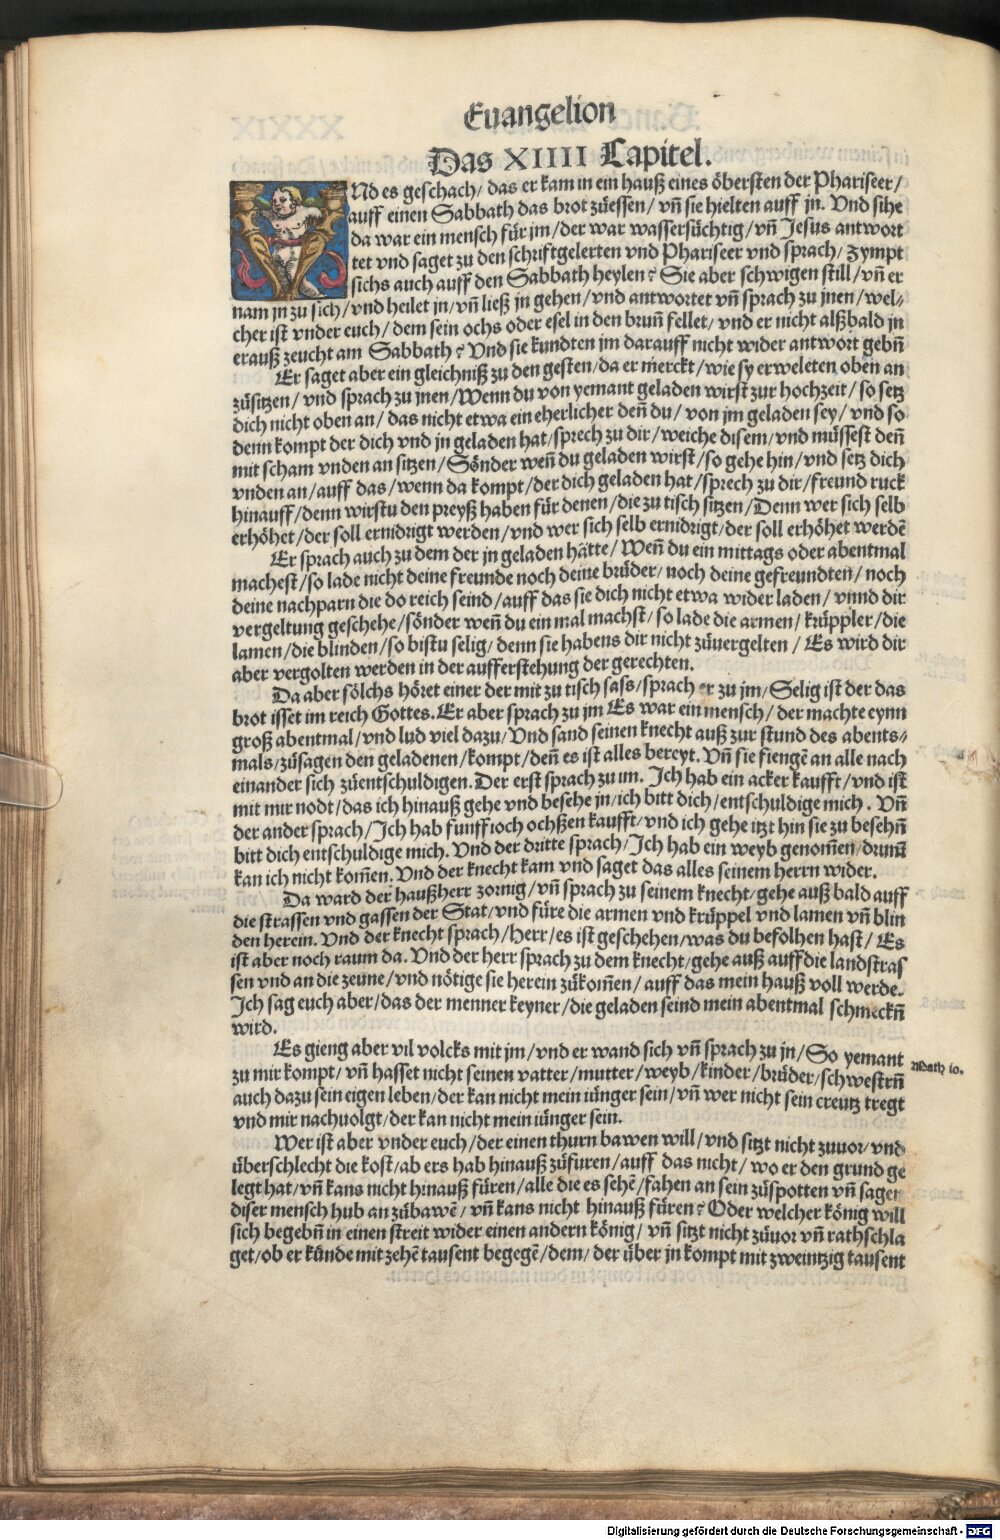 Euangelion
Das XIIII Capitel.
VNd es geschach/ das er kam in ein hauß eines öbersten der Phariseer/
auff einen Sabbath das brot zůessen/ vñ sie hielten auff jn. Vnd sihe
da war ein mensch für jm/ der war wassersüchtig/ vñ Jesus antwort
tet vnd saget zu den schriftgelerten vnd Phariseer vnd sprach/ Zympt
sichs auch auff den Sabbath heylen? Sie aber schwigen still/ vñ er
nam jn zu sich/ vnd heilet jn/ vñ ließ jn gehen/ vnd antwortet vñ sprach zu jnen/ wel-
cher ist vnder euch/ dem sein ochs oder esel in den bruñ fellet/ vnd er nicht alßbald jn
erauß zeucht am Sabbath? Vnd sie kundten jm darauff nicht wider antwort gebñ
Er saget aber ein gleichniß zu den gesten/ da er merckt/ wie sy erweleten oben an
zůsitzen/ vnd sprach zu jnen/ Wenn du von yemant geladen wirst zur hochzeit/ so setz
dich nicht oben an/ das nicht etwa ein eherlicher deñ du/ von jm geladen sey/ vnd so
denn kompt der dich vnd jn geladen hat/ sprech zu dir/ weiche disem/ vnd müssest deñ
mit scham vnden an sitzen/ Sönder weñ du geladen wirst/ so gehe hin/ vnd setz dich
vnden an/ auff das/ wenn da kompt/ der dich geladen hat/ sprech zu dir/ freund ruck
hinauff/ denn wirstu den preyß haben für denen/ die zu tisch sitzen/ Denn wer sich selb
erhöhet/ der soll ernidrigt werden/ vnd wer sich selb ernidrigt/ der soll erhöhet werdē
Er sprach auch zu dem der jn geladen hätte/ Weñ du ein mittags oder abentmal
machest/ so lade nicht deine freunde noch deine brüder/ noch deine gefreundten/ noch
deine nachparn die do reich seind/ auff das sie dich nicht etwa wider laden/ vnnd dir
vergeltung geschehe/ sönder weñ du ein mal machst/ so lade die armen/ krüppler/ die
lamen/ die blinden/ so bistu selig/ denn sie habens dir nicht zůvergelten/ Es wird dir
aber vergolten werden in der aufferstehung der gerechten.
Da aber sölchs höret einer der mit zu tisch sass/ sprach er zu jm/ Selig ist der das
brot isset im reich Gottes. Er aber sprach zu jm Es war ein mensch/ der machte eynn
groß abentmal/ vnd lud viel dazu/ Vnd sand seinen knecht auß zur stund des abents-
mals/ zůsagen den geladenen/ kompt/ deñ es ist alles bereyt. Vñ sie fiengē an alle nach
einander sich zůentschuldigen. Der erst sprach zu im. Ich hab ein acker kaufft/ vnd ist
mit mir nodt/ das ich hinauß gehe vnd besehe jn/ ich bitt dich/ entschuldige mich. Vñ
der ander sprach/ Ich hab funff ioch ochßen kaufft/ vnd ich gehe itzt hin sie zu besehñ
bitt dich entschuldige mich. Vnd der dritte sprach/ Ich hab ein weyb genom̄en/ drum̄
kan ich nicht kom̄en. Vnd der knecht kam vnd saget das alles seinem herrn wider.
Da ward der haußherr zornig/ vñ sprach zu seinem knecht/ gehe auß bald auff
die strassen vnd gassen der Stat/ vnd füre die armen vnd krüppel vnd lamen vñ blin
den herein. Vnd der knecht sprach/ Herr/ es ist geschehen/ was du befolhen hast/ Es
ist aber noch raum da. Vnd der herr sprach zu dem knecht/ gehe auß auff die landstras
sen vnd an die zeune/ vnd nötige sie herein zůkom̄en/ auff das mein hauß voll werde.
Ich sag euch aber/ das der menner keyner/ die geladen seind mein abentmal schmeckñ
wird.
Es gieng aber vil volcks mit jm/ vnd er wand sich vñ sprach zu jn/ So yemant
zu mir kompt/ vñ hasset nicht seinen vatter/ mutter/ weyb/ kinder/ brüder/ schwestrñ
auch dazu sein eigen leben/ der kan nicht mein iünger sein/ vñ wer nicht sein creutz tregt
vnd mir nachuolgt/ der kan nicht mein iünger sein.
Math 10.
Wer ist aber vnder euch/ der einen thurn bawen will/ vnd sitzt nicht zuuor/ vnd
überschlecht die kost/ ab ers hab hinauß zůfuren/ auff das nicht/ wo er den grund ge
legt hat/ vñ kans nicht hinauß füren/ alle die es sehē/ fahen an sein zůspotten vñ sagen
diser mensch hub an zůbawē/ vñ kans nicht hinauß füren? Oder welcher könig will
sich begebñ in einen streit wider einen andern könig/ vñ sitzt nicht zůuor vñ rathschla
get/ ob er künde mit zehē tausent begegē/ dem/ der über jn kompt mit zweintzig tausent
Digitalisierung gefördert durch die Deutsche Forschungsgemeinschaft - DFG